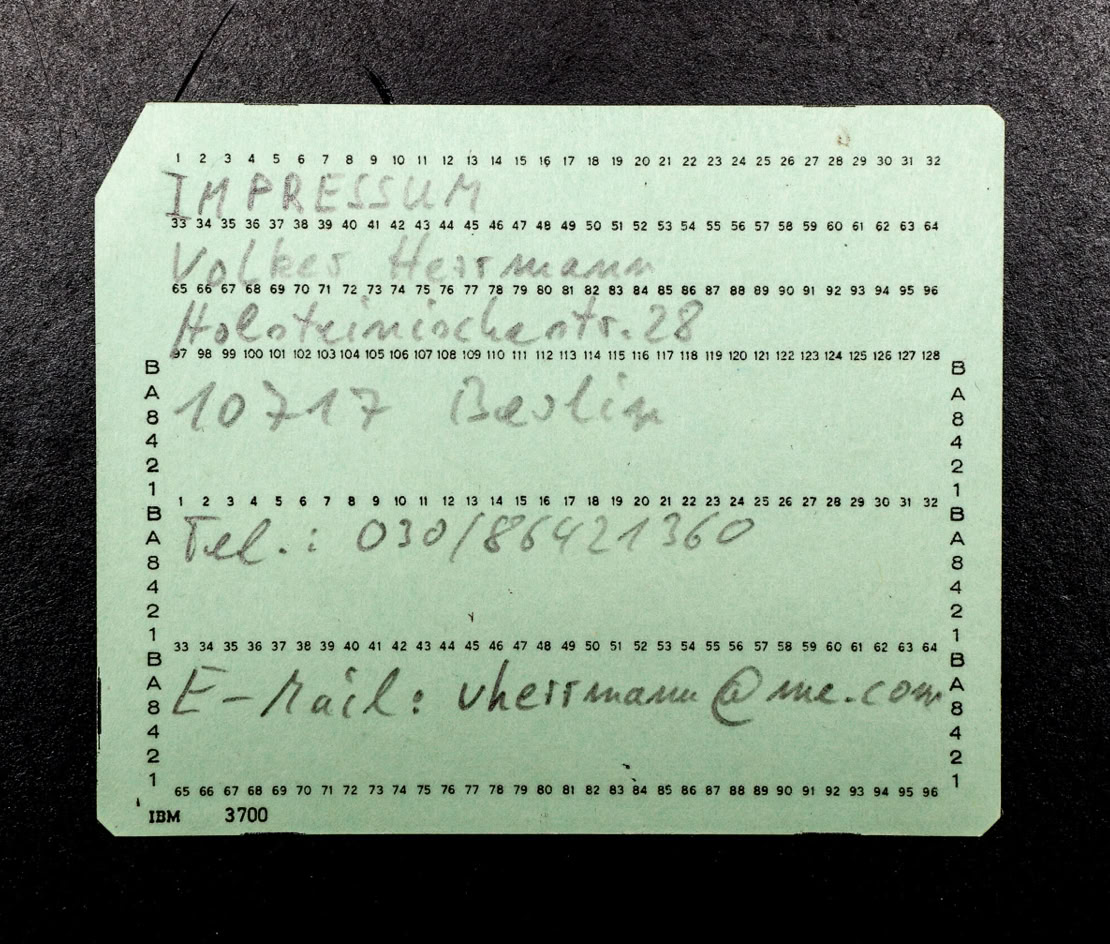 1 2 3 4 5 6 7 8 9 10 11 12 13 14 15 16 17 18 19 20 21 22 23 24 25 26 27 28 29 30 31 32
IMPRESSUM
33 34 35 36 37 38 39 40 41 42 43 44 45 46 47 48 49 50 51 52 53 54 55 56 57 58 59 60 61 62 63 64
Volker Herrmann
65 66 67 68 69 70 71 72 73 74 75 76 77 78 79 80 81 82 83 84 85 86 87 88 89 90 91 92 93 94 95 96
Holsteinischestr. 28
97 98 99 100 101 102 103 104 105 106 107 108 109 110 111 112 113 114 115 116 117 118 119 120 121 122 123 124 125 126 127 128
B B
A A
10717 Berlin
8 8
4 4
2 2
1 1
1 2 3 4 5 6 7 8 9 10 11 12 13 14 15 16 17 18 19 20 21 22 23 24 25 26 27 28 29 30 31 32
B B
A A
Tel.: 030/86421360
8 8
4 4
2 2
1 1
33 34 35 36 37 38 39 40 41 42 43 44 45 46 47 48 49 50 51 52 53 54 55 56 57 58 59 60 61 62 63 64
B B
A A
E-Mail: vherrmann@me.com
8 8
4 4
2 2
1 1
65 66 67 68 69 70 71 72 73 74 75 76 77 78 79 80 81 82 83 84 85 86 87 88 89 90 91 92 93 94 95 96
IBM 3700